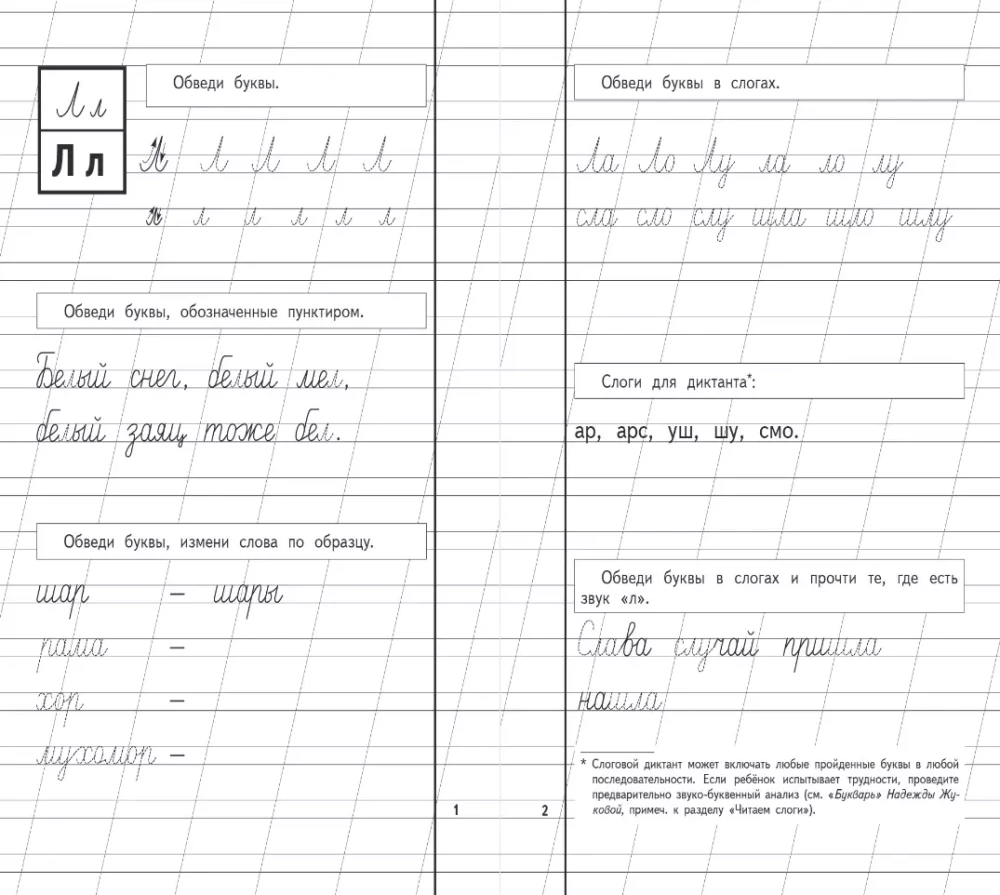 Л л
Л л
Обведи буквы.
Л Л Л Л Л
л л л л л л
Обведи буквы, обозначенные пунктиром.
Белый снег, белый мел,
белый заяц тоже бел.
Обведи буквы, измени слова по образцу.
шар – шары
рама –
хор –
мухомор –
1
Обведи буквы в слогах.
Ла Ло Лу ла ло лу
сла сло слу шла шло шлу
Слоги для диктанта*:
ар, арс, уш, шу, смо.
Обведи буквы в слогах и прочти те, где есть
звук «л».
Слава случай пришла
нашла
* Слоговой диктант может включать любые пройденные буквы в любой
последовательности. Если ребёнок испытывает трудности, проведите
предварительно звуко-буквенный анализ (см. «Букварь» Надежды Жу-
ковой, примеч. к разделу «Читаем слоги»).
2